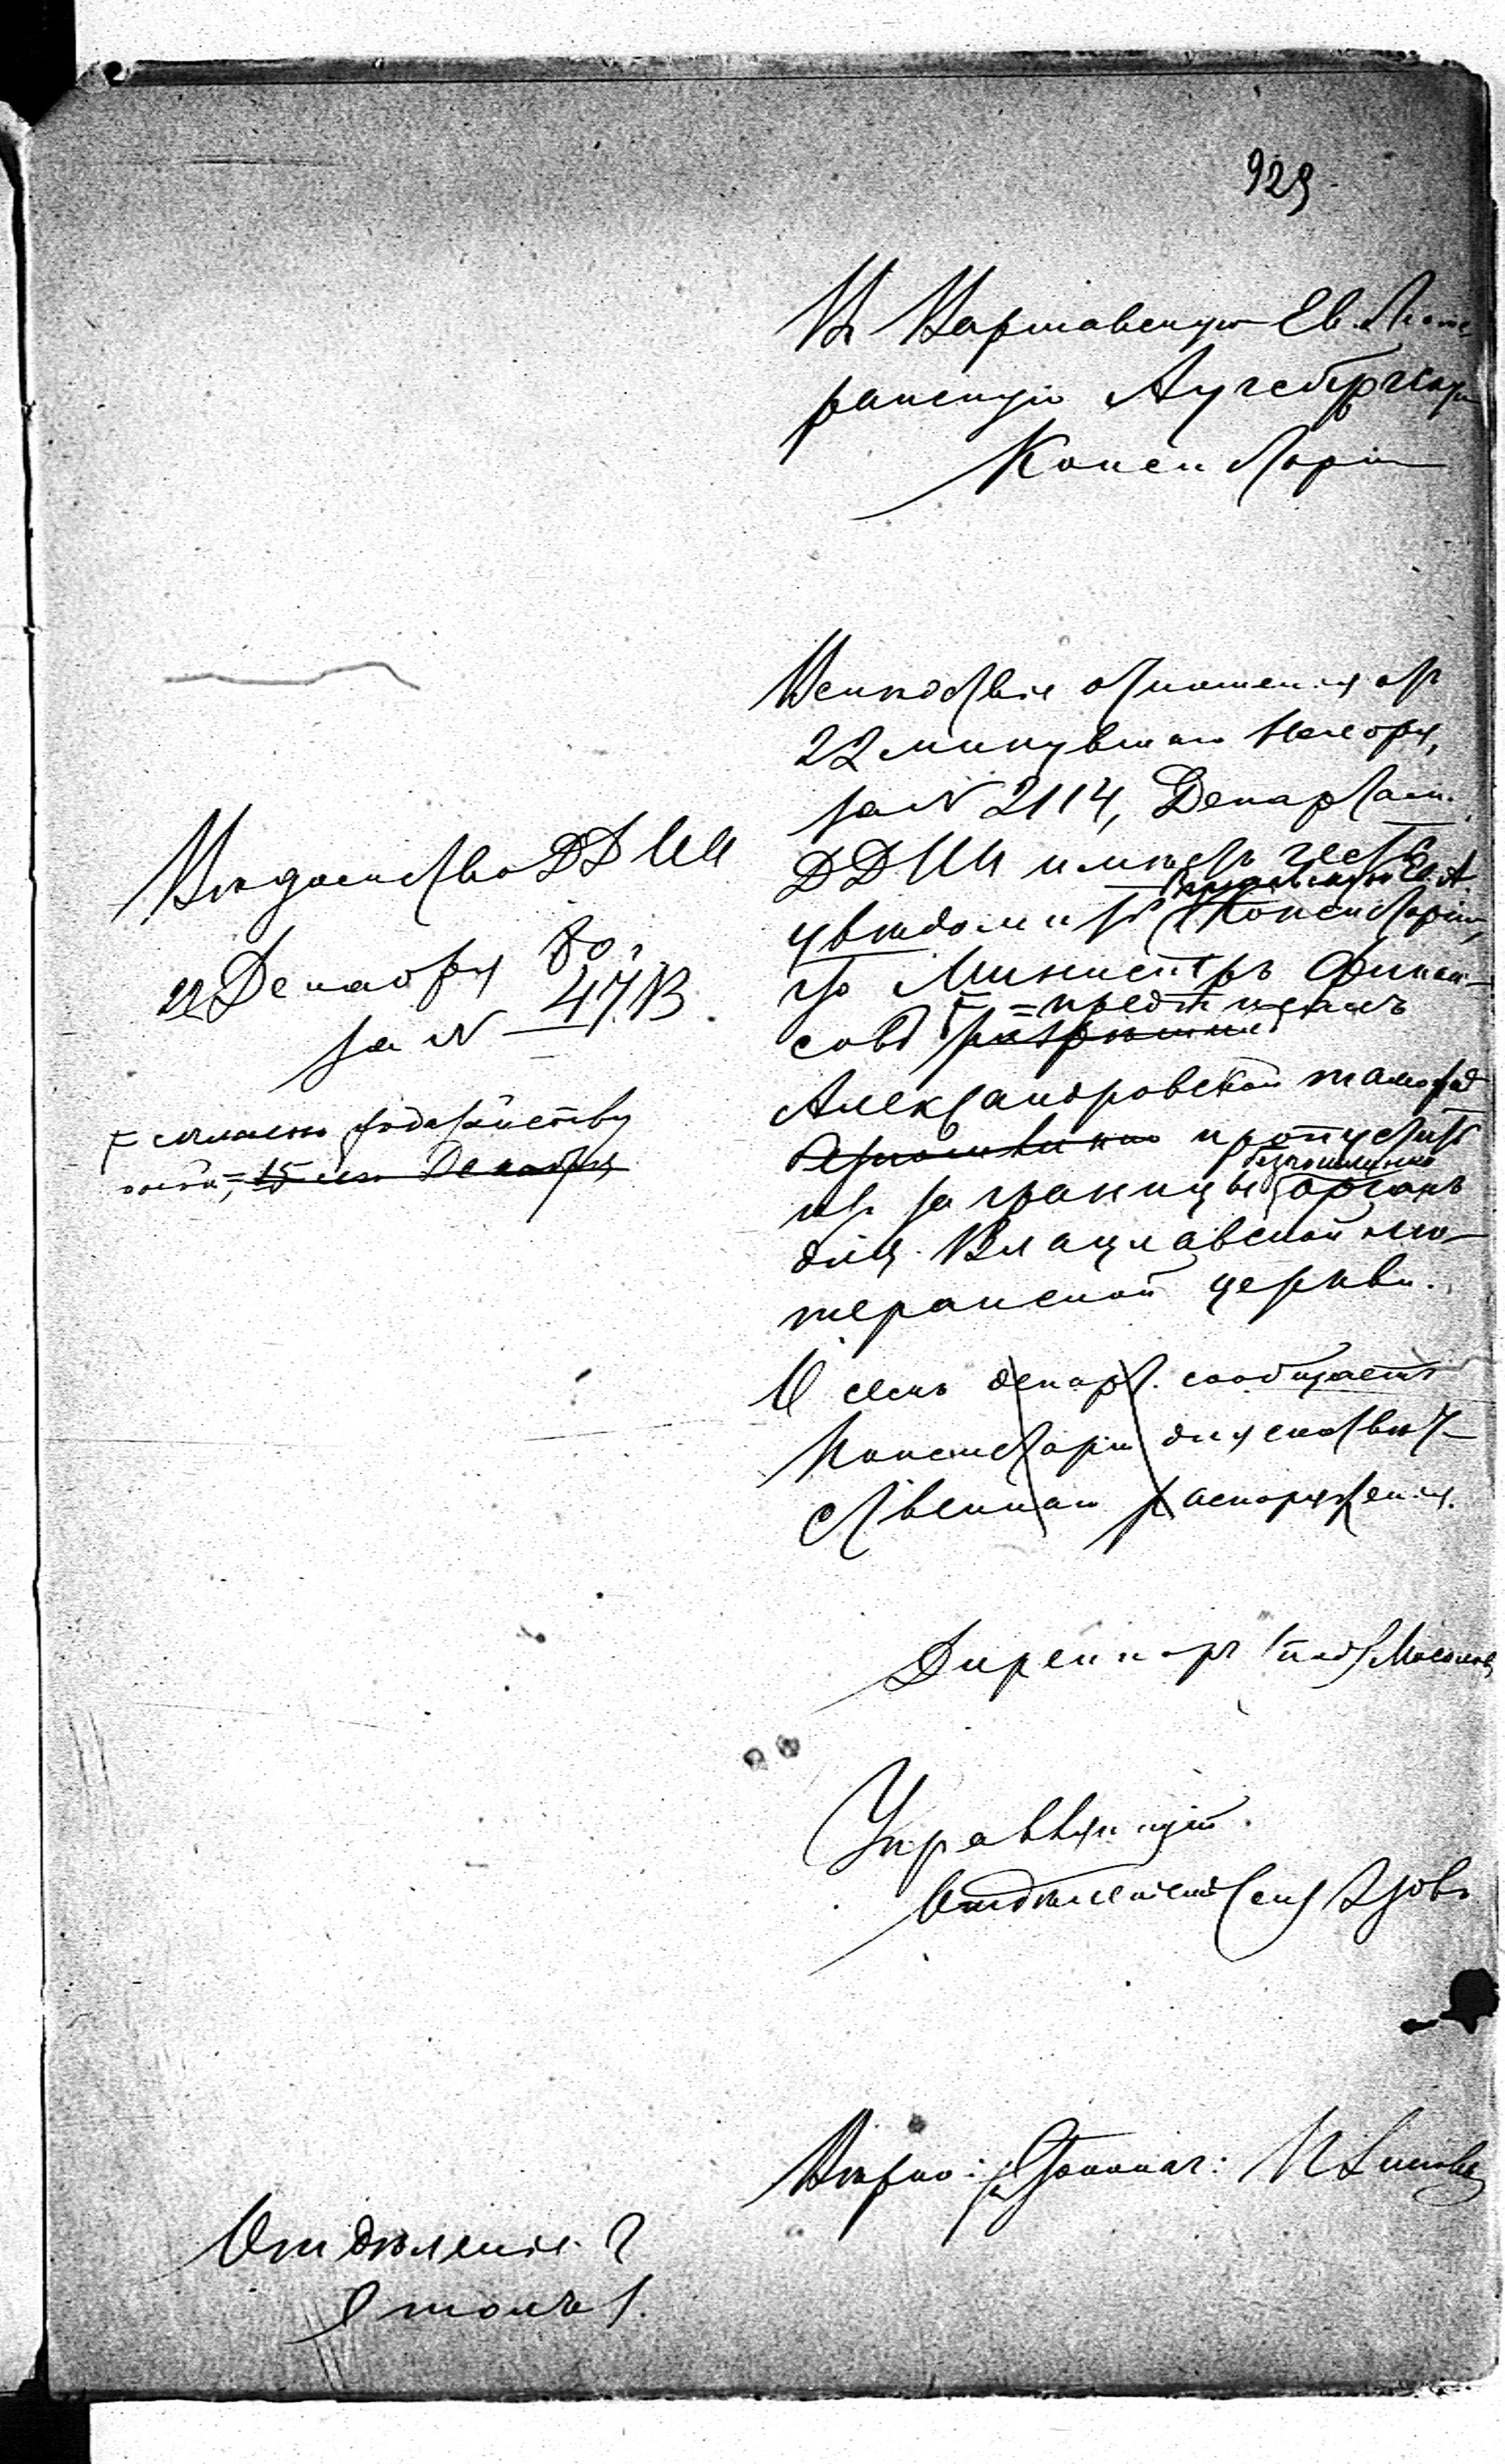 929
Въ Варшавскую Ев. Люте-
ранскую Аугсбургскую
Консисторію
Вслѣдствіе отношенія отъ
22 минувшаго Ноября,
за N 2114, Департам.
ДДИИ имѣетъ честь
увѣдомить Евангел. А.
Консисторію,
что Министръ Финан-
совъ разрѣшилъ предписалъ
Александровской таможнѣ
пропустить
изъ за границы безпошлинно органъ
для Влацлавской лю-
теранской церкви.
О семъ департ. сообщаетъ
Консисторіи для зависящаго
распоряженія.
Директоръ (под.) Мосоловъ
Управляющій
Отдѣленіемъ
Вѣрно: Столонач:
Вѣдомство ДДИИ
22 Декабря 80 г.
за N 4713
= согласно ходатайству
оной =, 15 сего Декабря
Отдѣленіе 2
Столъ 1.